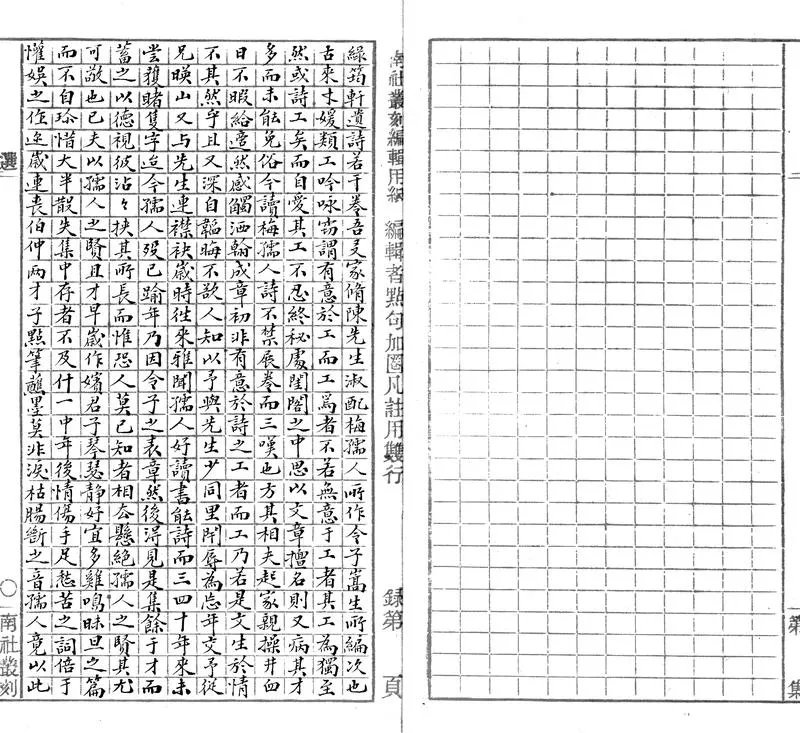 第　集
南社叢刻編輯用紙　編輯者點句加圈凡註用雙行　錄第　頁
綠筠軒遺詩若干卷吾友家脩陳先生淑配梅孺人所作令子嵩生所編次也
古來才媛類工吟咏竊謂有意於工而工焉者不若無意于工者其工為獨至
然或詩工矣而自愛其工不忍終秘處閨閣之中思以文章擅名則又病其才
多而未能免俗今讀梅孺人詩不禁展卷而三嘆也方其相夫起家親操井臼
日不暇給適然感觸洒翰成章初非有意於詩之工者而工乃若是文生於情
不其然乎且又深自韜晦不欲人知以予與先生少同里閈辱為忘年交予從
兄暎山又与先生連襟袂歲時往來雅聞孺人好讀書能詩而三四十年來未
嘗獲睹隻字迨今孺人歿已踰年乃因令子之表章然後得見是集餘于才而
蓄之以德視彼沾々挾其所長而惟恐人莫己知者相去懸絕孺人之賢其尤
可敬也已夫以孺人之賢且才早歲作嬪君子琴瑟靜好宜多雞鳴昧旦之篇
而不自珍惜大半散失集中存者不及什一中年後情傷手足愁苦之詞倍于
懽娛之作迩歲連喪伯仲兩才子點筆蘸墨莫非淚枯腸斷之音孺人竟以此
選　〇　南社叢刻